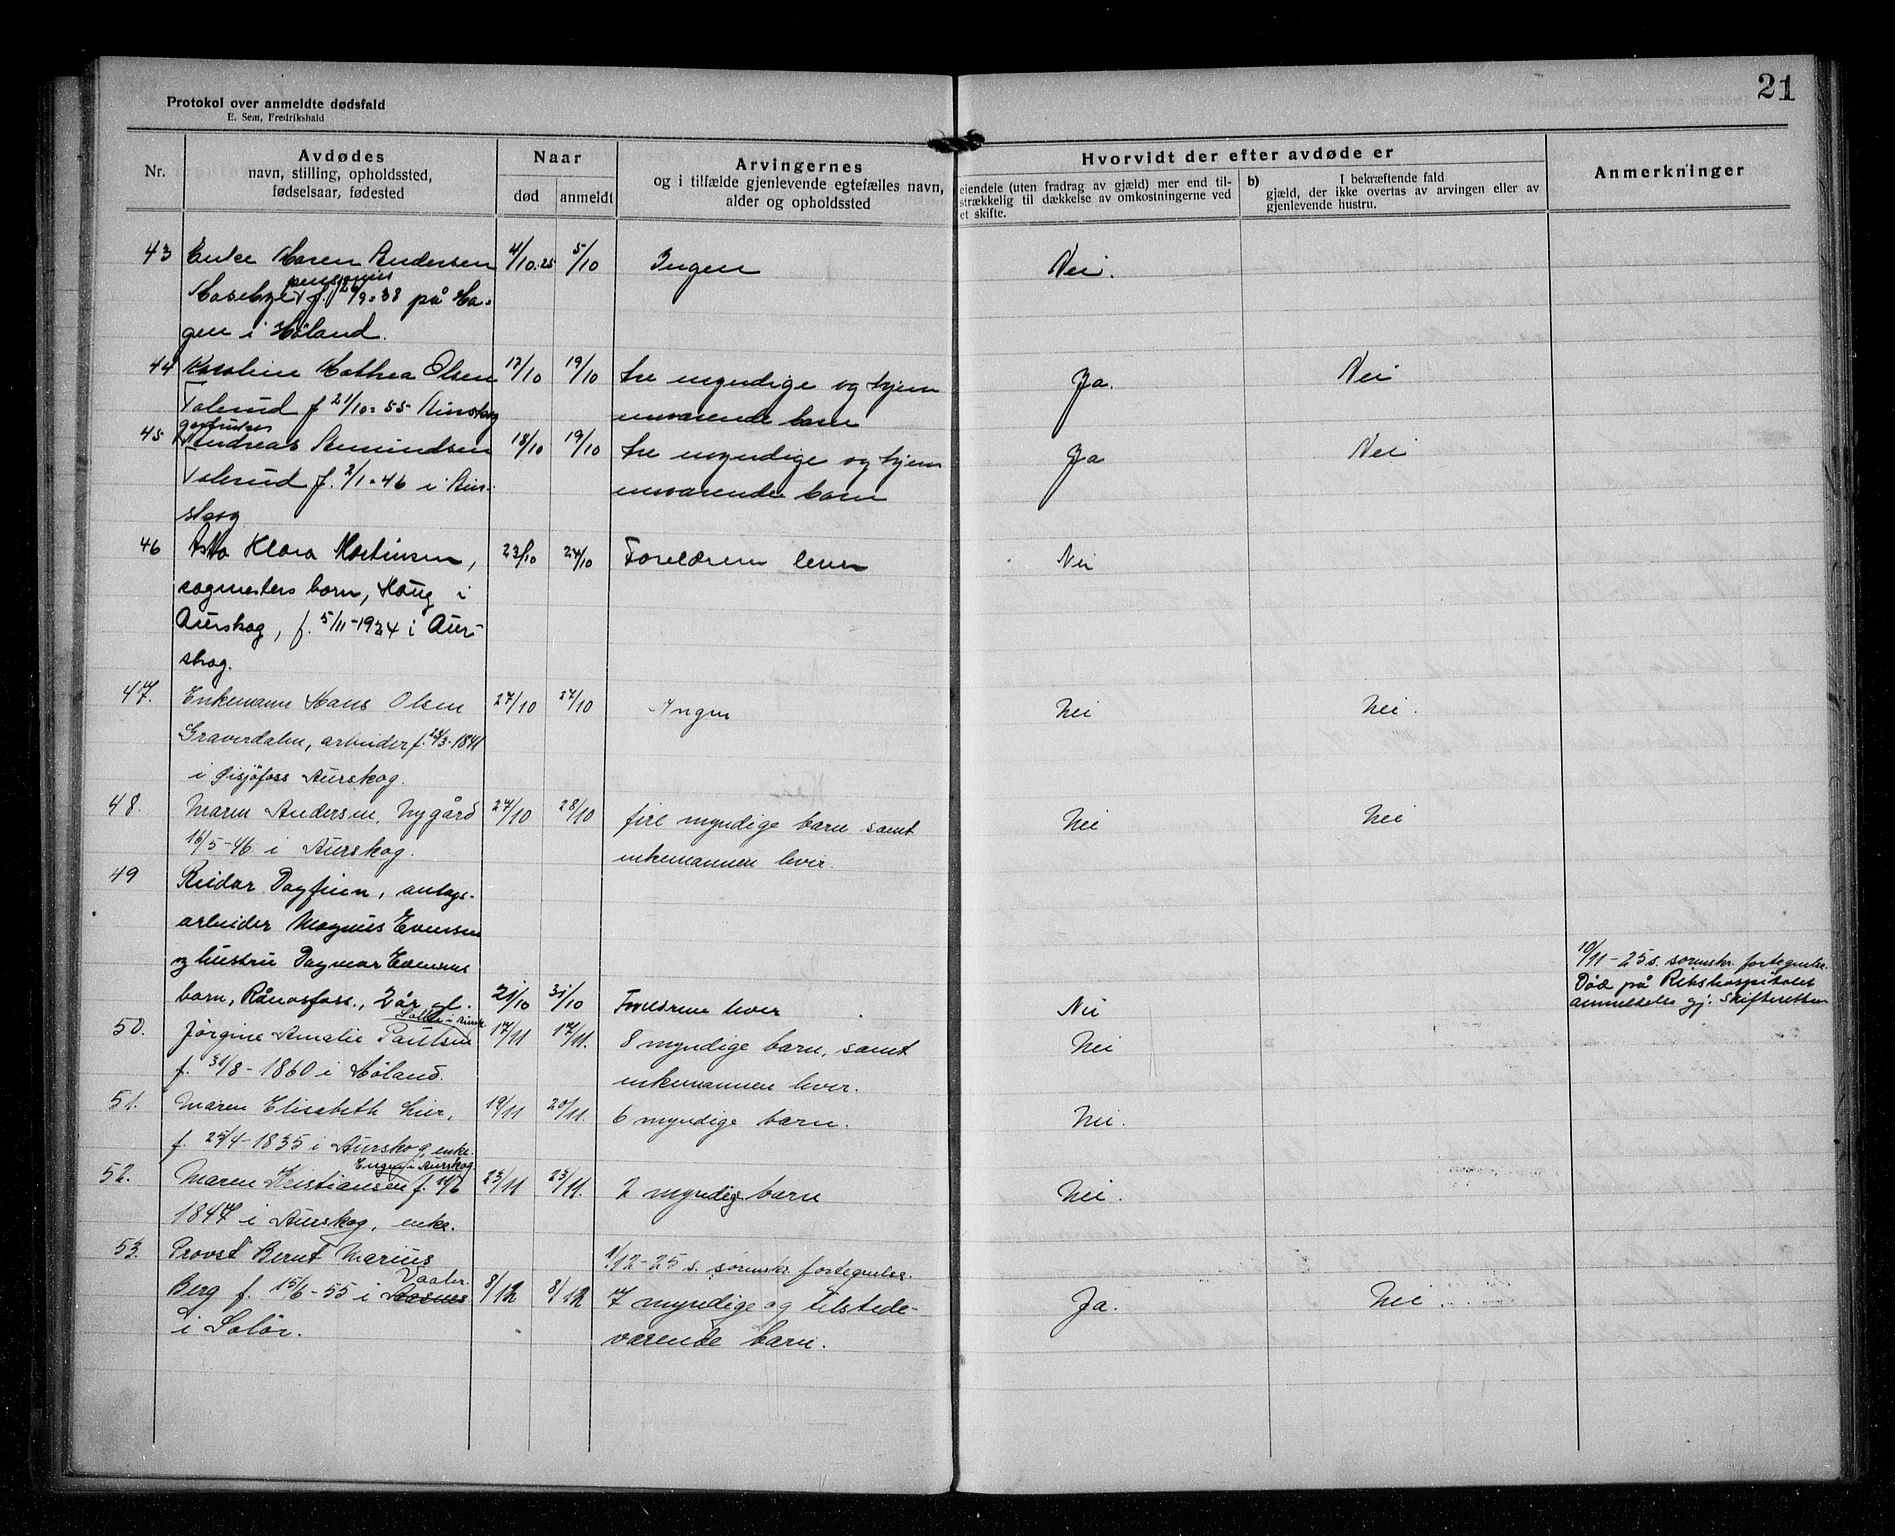 21
Protokol over anmeldte dødsfald
E. Sem, Fredrikshald
Nr.
Avdødes
navn, stilling, opholdssted,
fødselsaar, fødested
Naar
død
anmeldt
Arvingernes
og i tilfælde gjenlevende egtefælles navn,
alder og opholdssted
Hvorvidt der efter avdøde er
eiendele (uten fradrag av gjæld) mer end til-
strækkelig til dækkelse av omkostningerne ved
et skifte.
b) I bekræftende fald
gjæld, der ikke overtas av arvingen eller av
gjenlevende hustru.
Anmerkninger
43 Enke Maren Andersen 4/10.25 5/10 Ingen Nei.
pensjonist
f. 26/9-38 på Ha-
gen i Høland.
44 Karoline Mathea Olsen 17/10 19/10 tre myndige og hjem Ja. Nei
Tolerud f 21/10-55 Aurskog
enværende barn
gårdbruker
45 Andreas Amundsen 18/10 19/10 tre myndige og hjem Ja Nei
Tolerud f. 2/1-46 i Aur-
enværende barn
skog
46 Asta Klara Martinsen, 23/10 24/10 Forældrene lever Nei
sagmesters barn, Haug i
Aurskog, f. 5/11-1924 i Aur-
skog.
47. Enkemann Hans Olsen 27/10 27/10 Ingen Nei Nei.
Graverdalen, arbeider f. 23/3-1841
i Øisjøfoss Aurskog.
48. Maren Andersen, Nygård 27/10 28/10 fire myndige barn samt Nei Nei
16/5-46 i Aurskog.
enkemannen lever.
49 Reidar Dagfinn, anlegs-
arbeider Magnus Evensen
og hustru Dagmar Evensens
barn, Rånåsfoss., 2 år gl. 21/10 31/10 Foreldrene lever Nei
10/11-25 s. sorenskr. fortegnelse.
Død på Rikshospitalet
anmeldelse gj. skifteretten
50. Jørgine Amalie Paulsen 17/11 17/11. 8 myndige barn, samt Nei
f. 31/8-1860 i Høland.
enkemannen lever.
51. Maren Elisabeth Lier, 19/11 20/11. 6 myndige barn. Nei.
f. 25/4-1835 i Aurskog, enke.
Engen i Aurskog
52. Maren Kristiansen f. 19/6 23/11 23/11. 2 myndige barn Nei.
1847 i Aurskog, enke.
53. Provst Bernt Marius
1/12-25 s. sorenskr. fortegnelse.
Vaaler
Berg f. 15/6-55 i Aasnes 8/12 8/12 7 myndige og tilstede- Ja. Nei
i Solør.
værende barn.